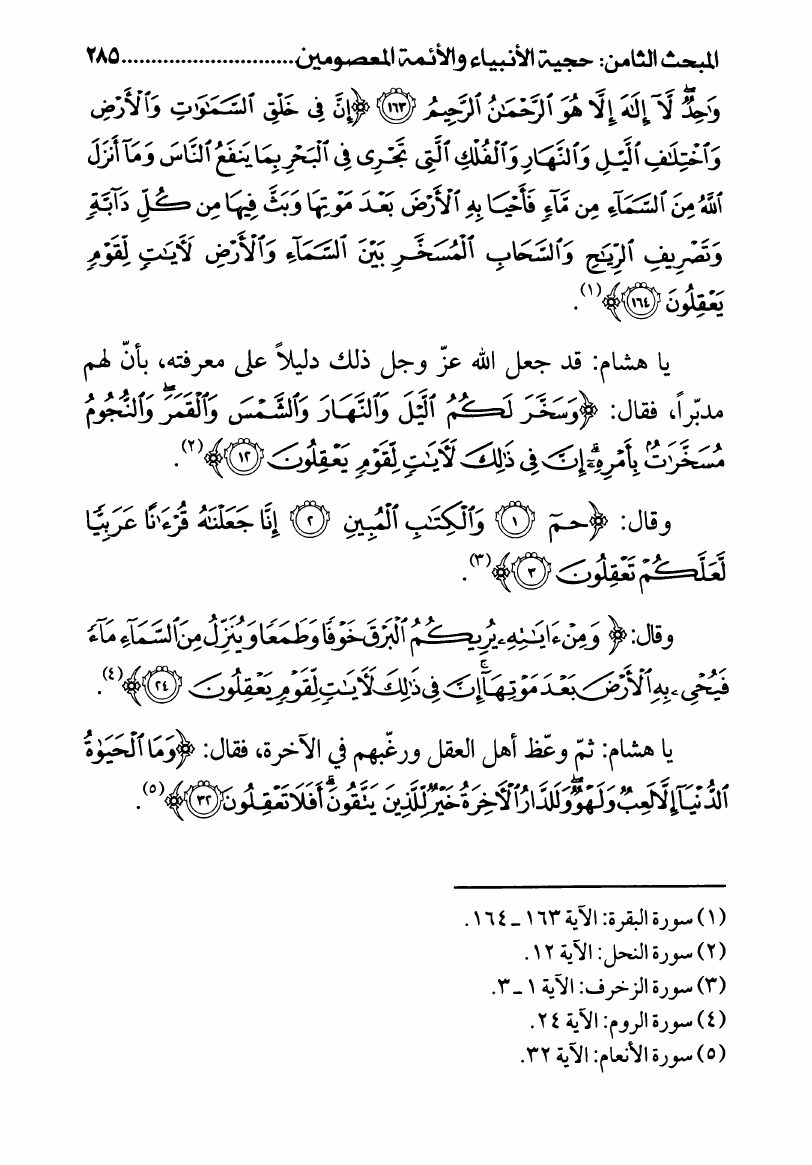 المبحث الثامن: حجية الأنبياء والأئمة المعصومين..............................٢٨٥
وَٰحِدٞۖ لَّآ إِلَٰهَ إِلَّا هُوَ ٱلرَّحۡمَٰنُ ٱلرَّحِيمُ ١٦٣ ﴿إِنَّ فِي خَلۡقِ ٱلسَّمَٰوَٰتِ وَٱلۡأَرۡضِ
وَٱخۡتِلَٰفِ ٱلَّيۡلِ وَٱلنَّهَارِ وَٱلۡفُلۡكِ ٱلَّتِي تَجۡرِي فِي ٱلۡبَحۡرِ بِمَا يَنفَعُ ٱلنَّاسَ وَمَآ أَنزَلَ
ٱللَّهُ مِنَ ٱلسَّمَآءِ مِن مَّآءٖ فَأَحۡيَا بِهِ ٱلۡأَرۡضَ بَعۡدَ مَوۡتِهَا وَبَثَّ فِيهَا مِن كُلِّ دَآبَّةٖ
وَتَصۡرِيفِ ٱلرِّيَٰحِ وَٱلسَّحَابِ ٱلۡمُسَخَّرِ بَيۡنَ ٱلسَّمَآءِ وَٱلۡأَرۡضِ لَأٓيَٰتٖ لِّقَوۡمٖ
يَعۡقِلُونَ ١٦٤﴾(١).
يا هشام: قد جعل الله عزّ وجل ذلك دليلاً على معرفته، بأنّ لهم
مدبّراً، فقال: ﴿وَسَخَّرَ لَكُمُ ٱلَّيۡلَ وَٱلنَّهَارَ وَٱلشَّمۡسَ وَٱلۡقَمَرَۖ وَٱلنُّجُومُ
مُسَخَّرَٰتُۢ بِأَمۡرِهِۦٓۚ إِنَّ فِي ذَٰلِكَ لَأٓيَٰتٖ لِّقَوۡمٖ يَعۡقِلُونَ ١٢﴾(٢).
وقال: ﴿حمٓ ١ وَٱلۡكِتَٰبِ ٱلۡمُبِينِ ٢ إِنَّا جَعَلۡنَٰهُ قُرۡءَٰنًا عَرَبِيّٗا
لَّعَلَّكُمۡ تَعۡقِلُونَ ٣﴾(٣).
وقال: ﴿وَمِنۡ ءَايَٰتِهِۦ يُرِيكُمُ ٱلۡبَرۡقَ خَوۡفٗا وَطَمَعٗا وَيُنَزِّلُ مِنَ ٱلسَّمَآءِ مَآءٗ
فَيُحۡيِۦ بِهِ ٱلۡأَرۡضَ بَعۡدَ مَوۡتِهَآۚ إِنَّ فِي ذَٰلِكَ لَأٓيَٰتٖ لِّقَوۡمٖ يَعۡقِلُونَ ٢٤﴾(٤).
يا هشام: ثمّ وعّظ أهل العقل ورغّبهم في الآخرة، فقال: ﴿وَمَا ٱلۡحَيَوٰةُ
ٱلدُّنۡيَآ إِلَّا لَعِبٞ وَلَهۡوٞۖ وَلَلدَّارُ ٱلۡأٓخِرَةُ خَيۡرٞ لِّلَّذِينَ يَتَّقُونَۚ أَفَلَا تَعۡقِلُونَ ٣٢﴾(٥).
(١) سورة البقرة: الآية ١٦٣ ـ ١٦٤.
(٢) سورة النحل: الآية ١٢.
(٣) سورة الزخرف: الآية ١ ـ ٣.
(٤) سورة الروم: الآية ٢٤.
(٥) سورة الأنعام: الآية ٣٢.